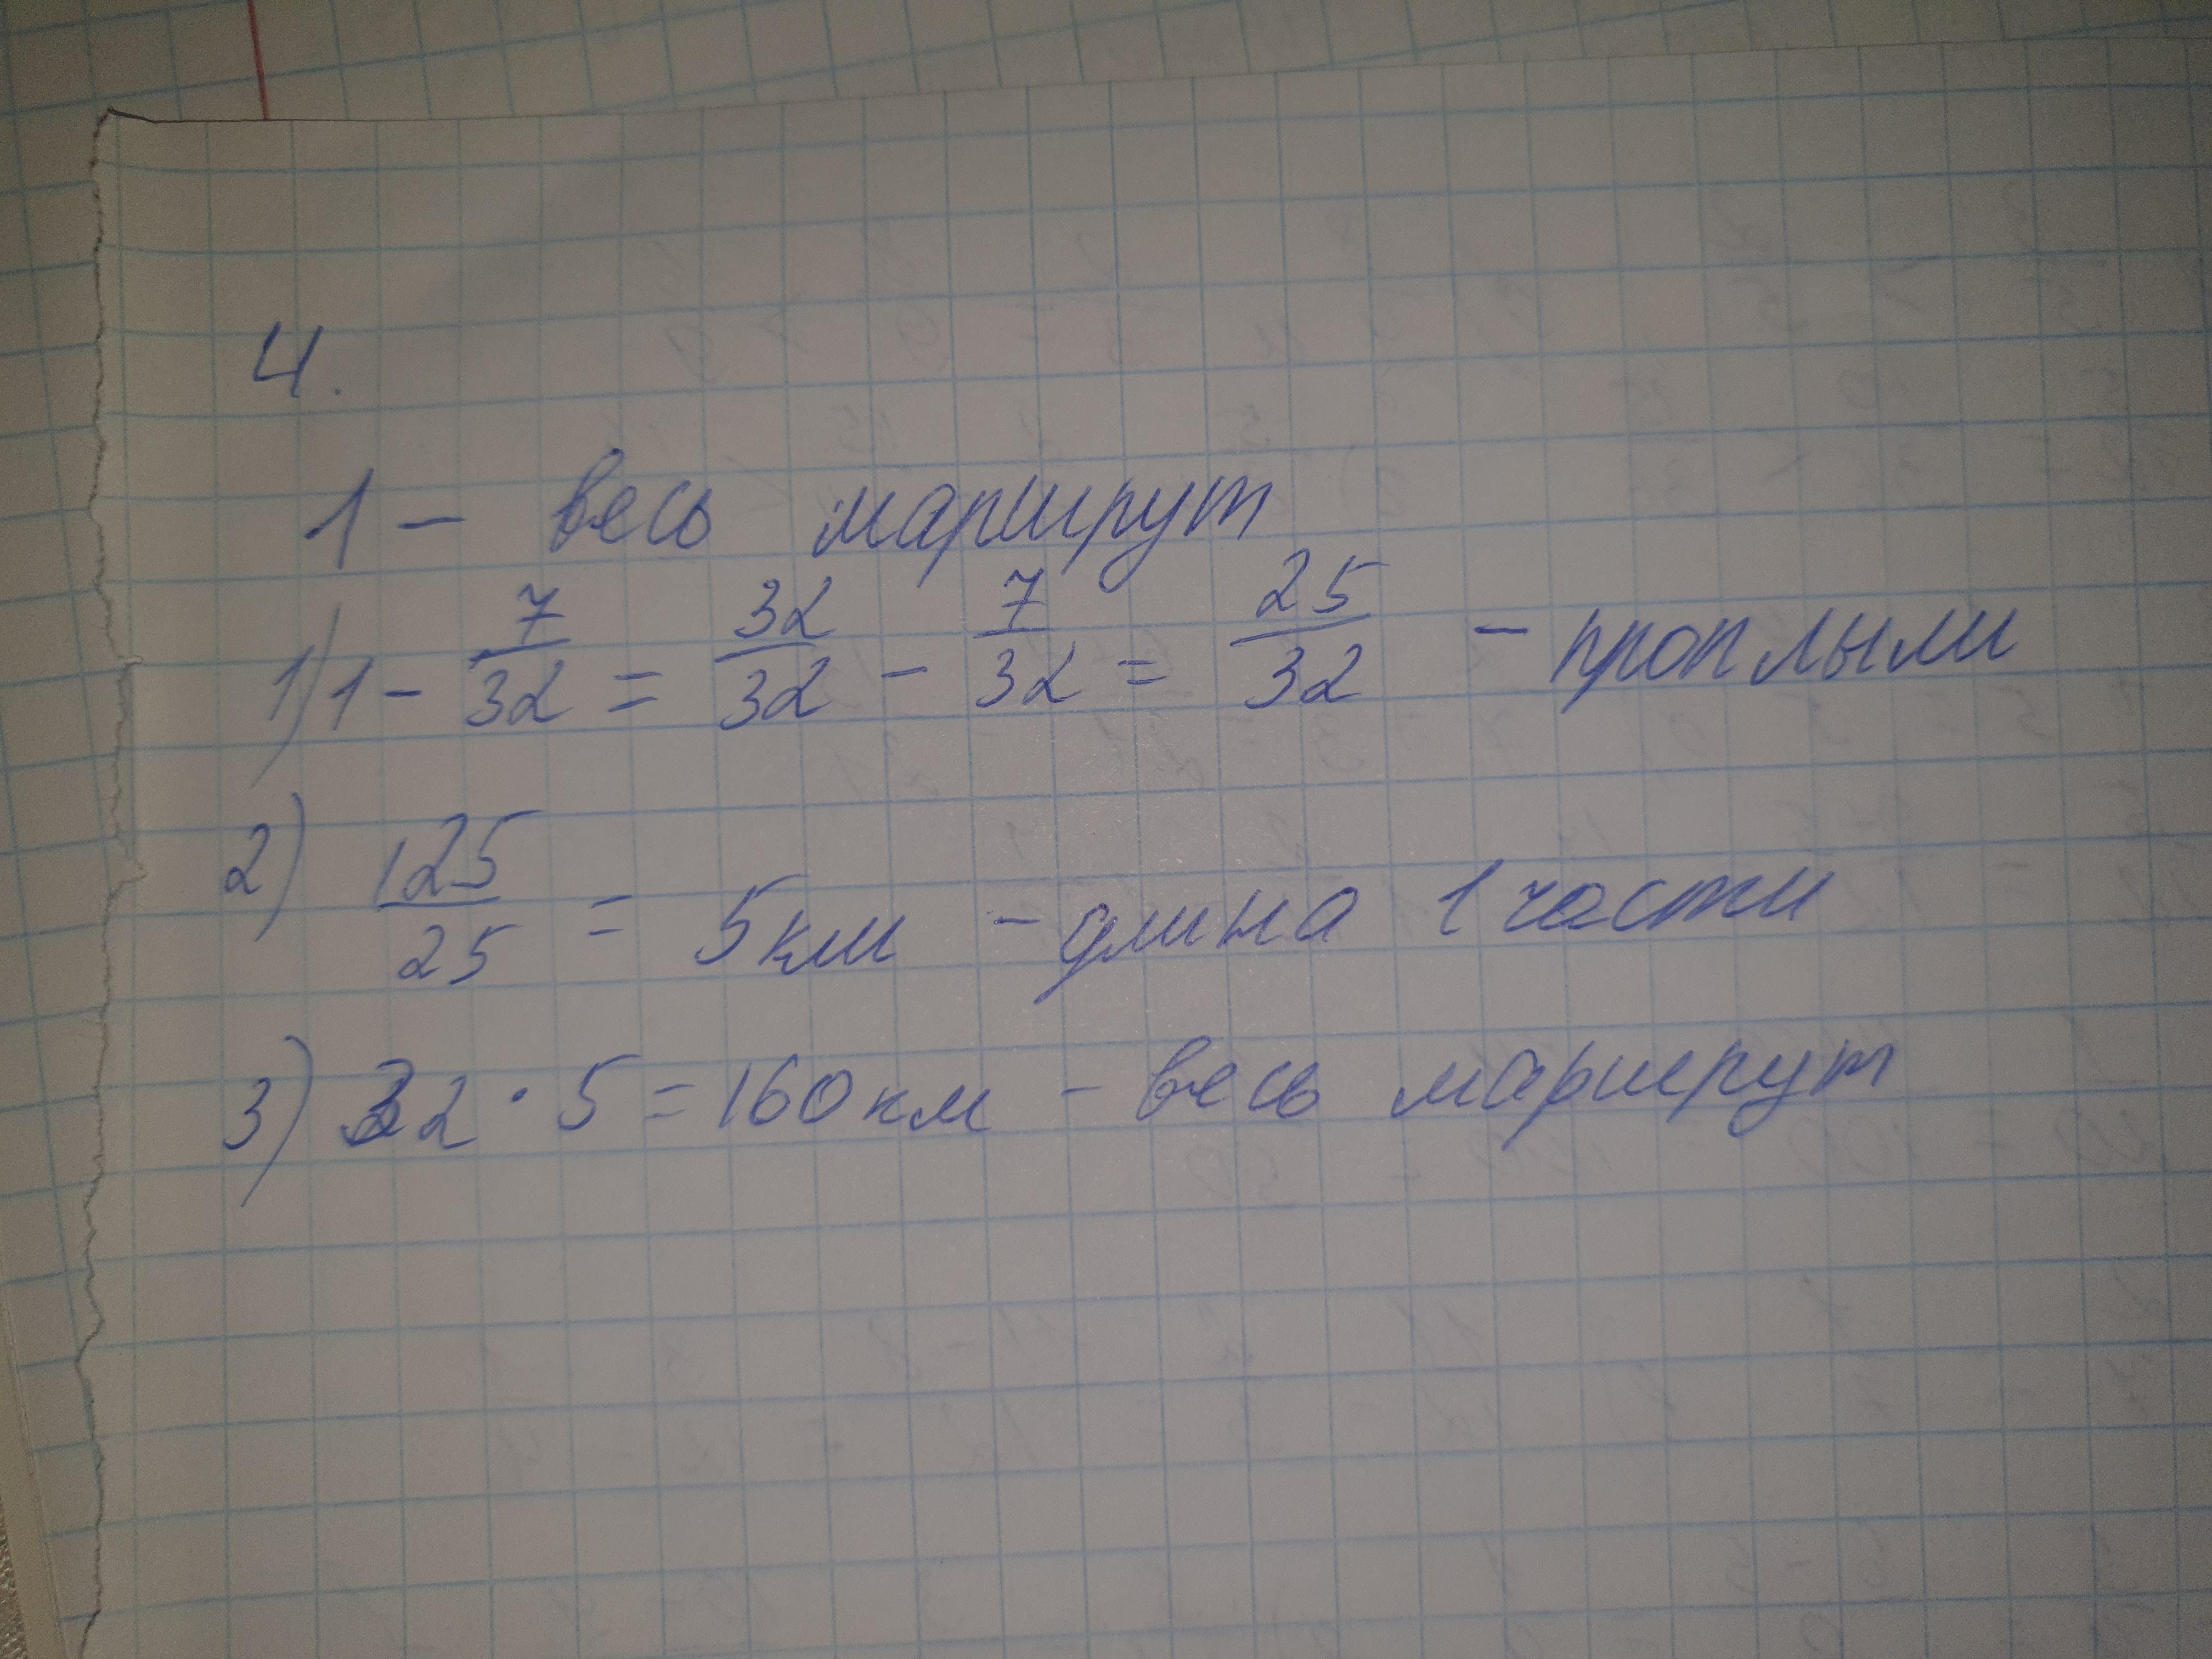 4.
1 – весь маршрут
1) 1 - 7/32 = 32/32 - 7/32 = 25/32 - проплыли
2) 125/25 = 5 км - длина 1 части
3) 32 · 5 = 160 км - весь маршрут